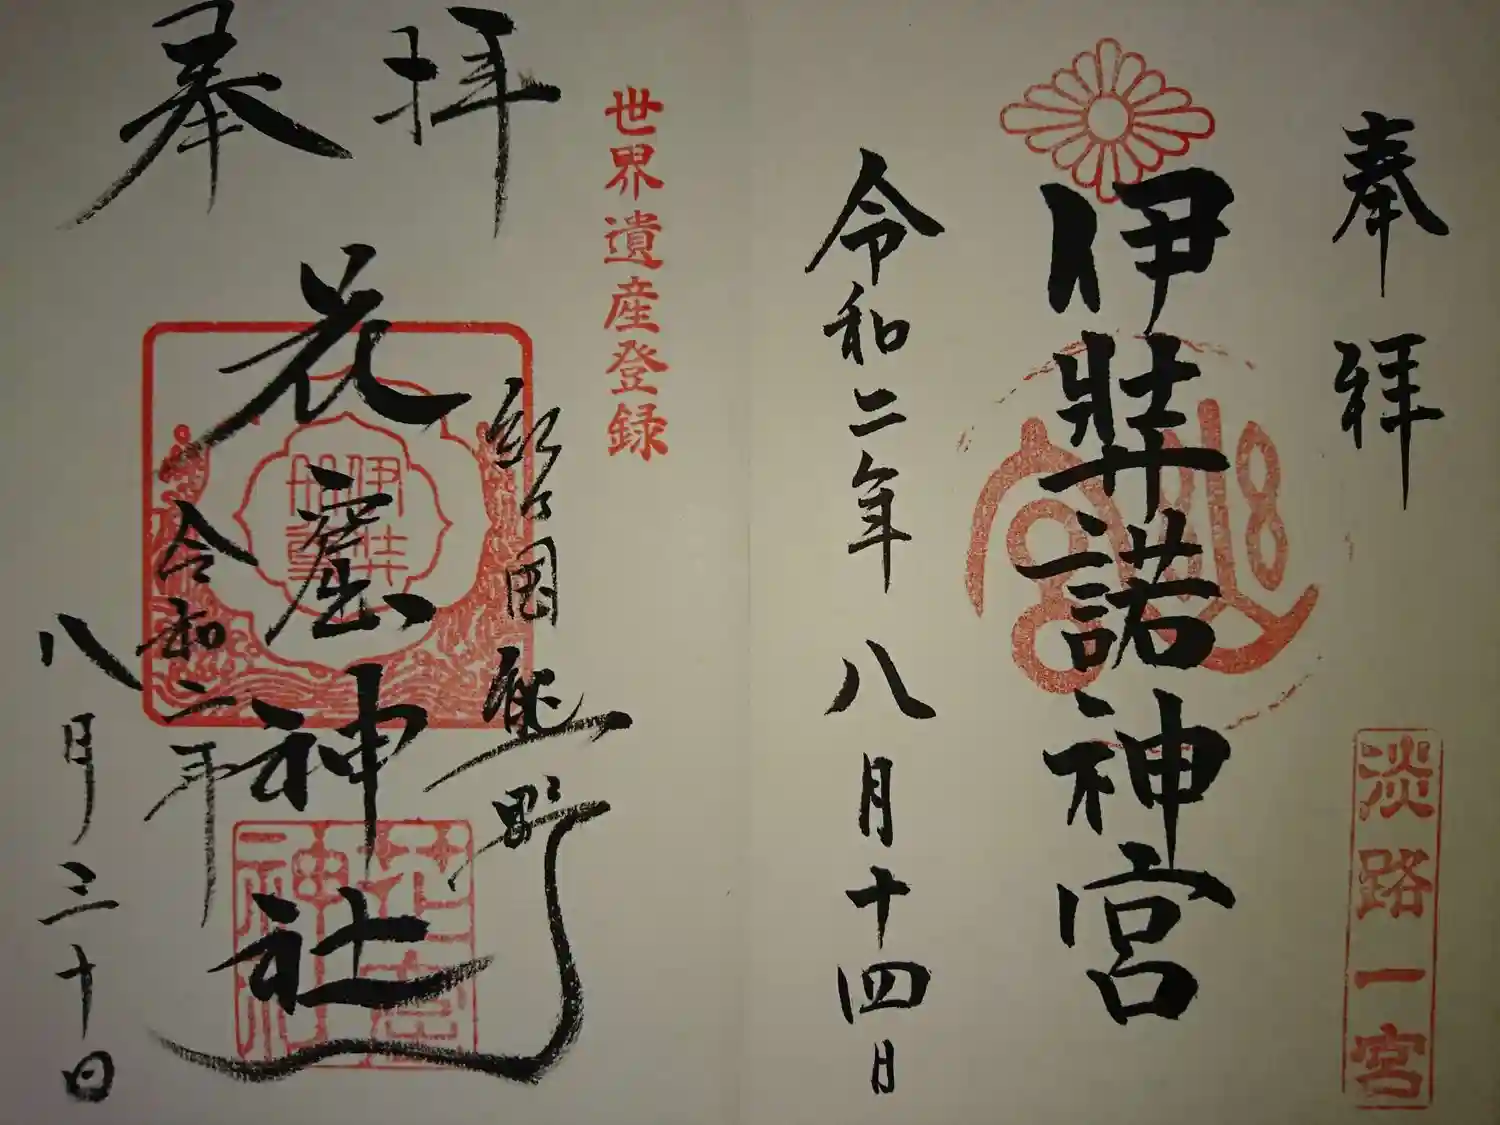 奉拝
伊弉諾神宮
淡路一宮
令和二年八月十四日
世界遺産登録
奉拝
紀国熊野
花窟神社
令和二年
八月三十日